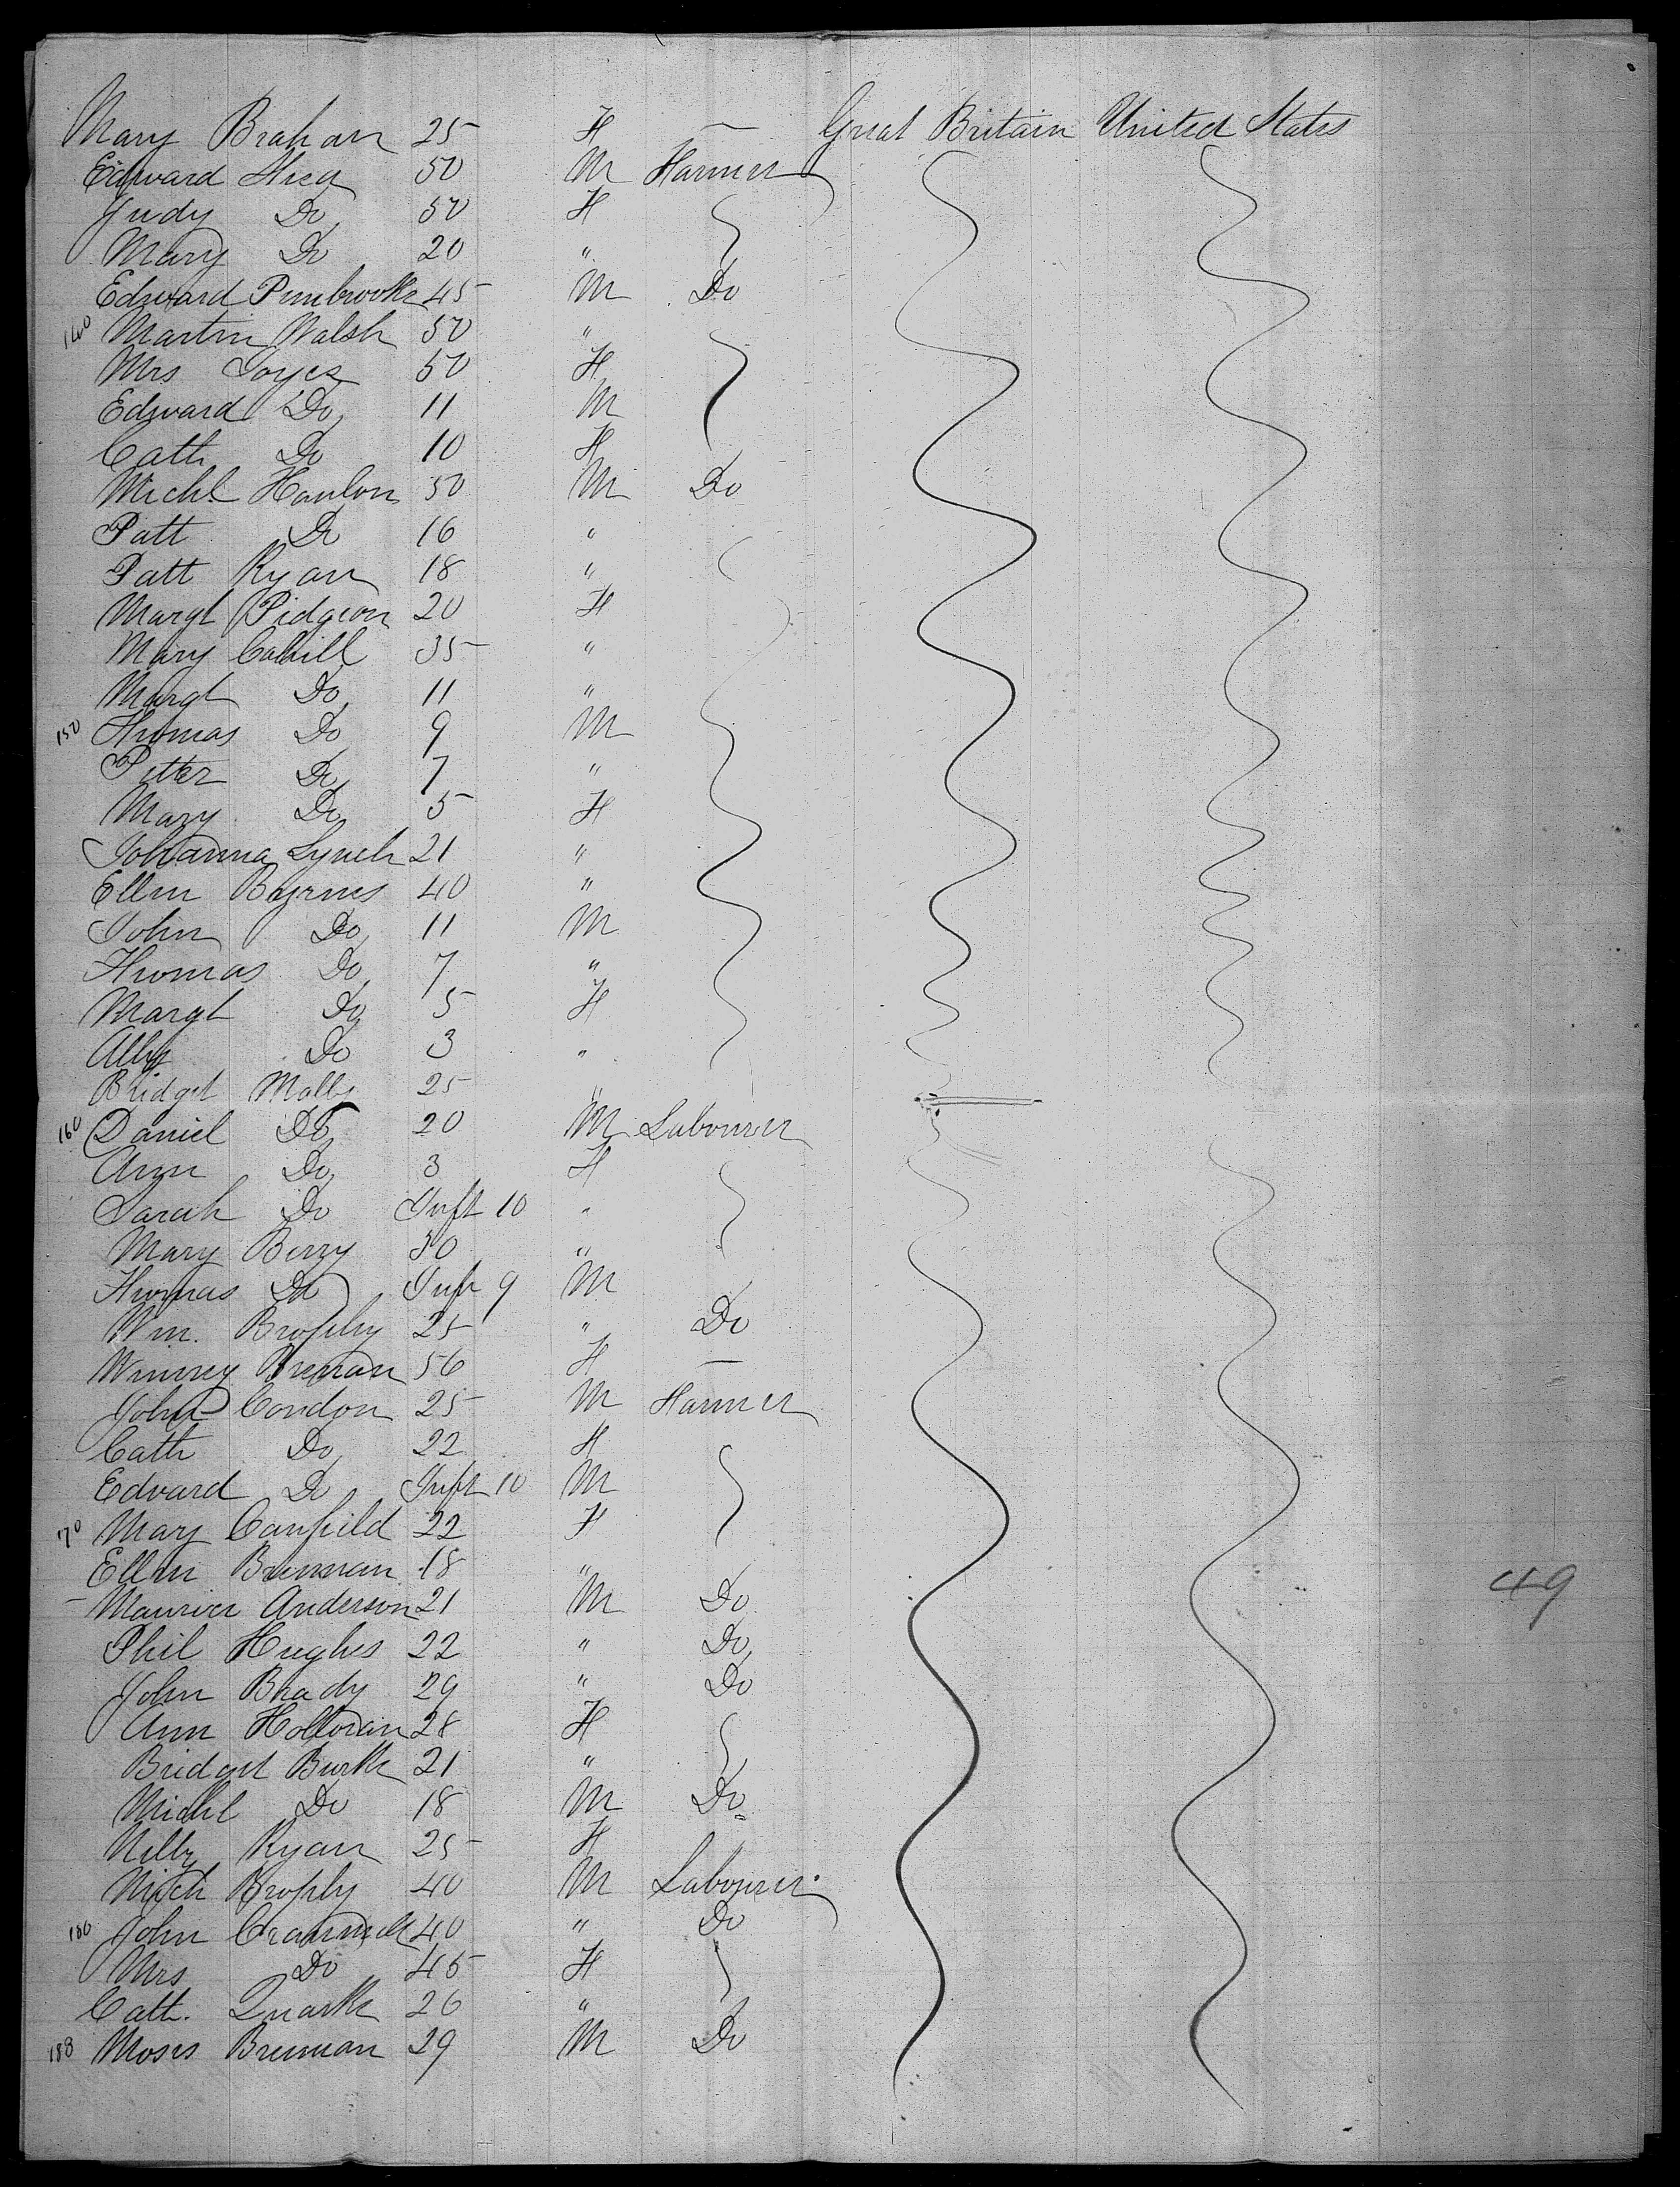 Mary Brahan 25 F — Great Britain United States
Edward Shea 50 M Farmer
Judy Do 50 F
Mary Do 20 "
Edward Pembrooke 45 M Do
140 Martin Walsh 50 "
Mrs Joyce 50 F
Edward Do 11 M
Cath Do 10 F
Michl Hanlon 50 M Do
Patt Do 16 "
Patt Ryan 18 "
Margt Pidgeon 20 F
Mary Cahill 35 "
Margt Do 11 "
150 Thomas Do 9 M
Petter Do 7 "
Mary Do 5 F
Johanna Lynch 21 "
Ellen Byrnes 40 "
John Do 11 M
Thomas Do 7 "
Margt Do 5 F
Ally Do 3 "
Bridget Mally 25 "
160 Daniel Do 20 M Labourer
Ann Do 3 F
Sarah Do Inft 10 "
Mary Berry 30 "
Thomas Do Inft 9 M
Wm. Brophy 25 " Do
Winney Brenan 56 F —
John Condon 25 M Farmer
Cath Do 22 F
Edward Do Inft 10 M
70 Mary Canfield 22 F
Ellen Brennan 18 "
Maurice Anderson 21 M Do
Phil Hughes 22 " Do
John Brady 29 " Do
Ann Holloran 28 F
Bridget Burke 21 "
Michl Do 18 M Do
Nelly Ryan 25 F
Mich Brophy 40 M Labourer
180 John 40 " Do
Mrs Do 45 F
Cath. Quarke 26 "
183 Moses Brennan 29 M Do
49